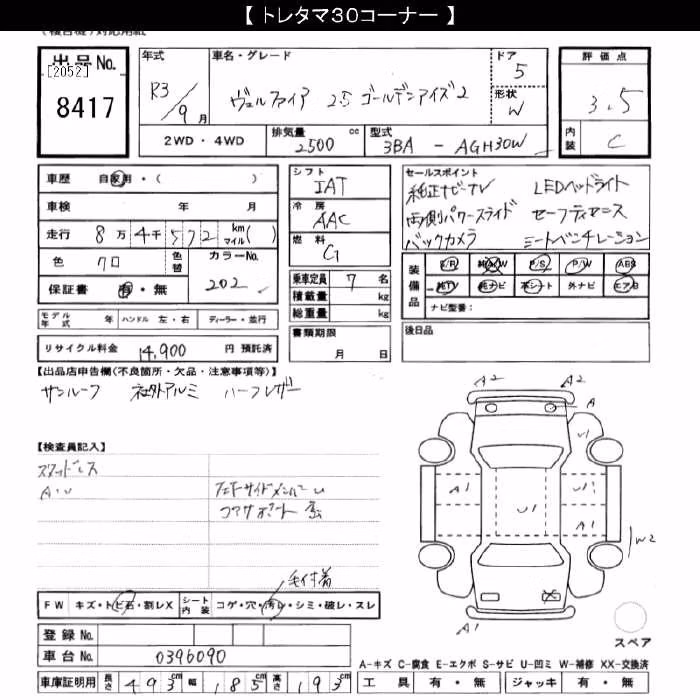 【 トレタマ30コーナー 】
出品No.
[2052]
8417
年式
R3/9月
車名・グレード
ヴェルファイア 2.5 ゴールデンアイズ2
ドア
5
形状
W
評価点
3.5
内装
C
2WD・4WD
排気量 2500 cc
型式 3BA - AGH30W
車歴 自家用・( )
車検 年 月
走行 8万4千572 km マイル( )
色 クロ
色替
カラーNo. 202
保証書 有・無
シフト
IAT
冷房
AAC
燃料
G
乗車定員 7 名
積載量 kg
総重量 kg
書類期限
月 日
セールスポイント
純正ナビ・TV LEDヘッドライト
両側パワースライド セーフティセンス
バックカメラ シートベンチレーション
装備品
S/R 純AW P/S P/W ABS
純TV 純ナビ 本シート 外ナビ エアB
ナビ型番：
後日品
モデル年式 年 ハンドル 左・右 ディーラー・並行
リサイクル料金 14,900 円 預託済
【出品店申告欄(不良箇所・欠品・注意事項等)】
サンルーフ 社外アルミ ハーフレザー
【検査員記入】
スタッドレス
AW
コアサポート
毛付着
FW キズ・トビ石・割レX
シート内装 コゲ・穴・汚レ・シミ・破レ・スレ
登録No.
車台No. 0396090
車庫証明用 長さ 493cm 幅 185cm 高さ 193cm
A2 A2
A
U1
A1 U1 U1
A1
W2
A1
スペア
A-キズ C-腐食 E-エクボ S-サビ U-凹ミ W-補修 XX-交換済
工具 有・無 ジャッキ 有・無